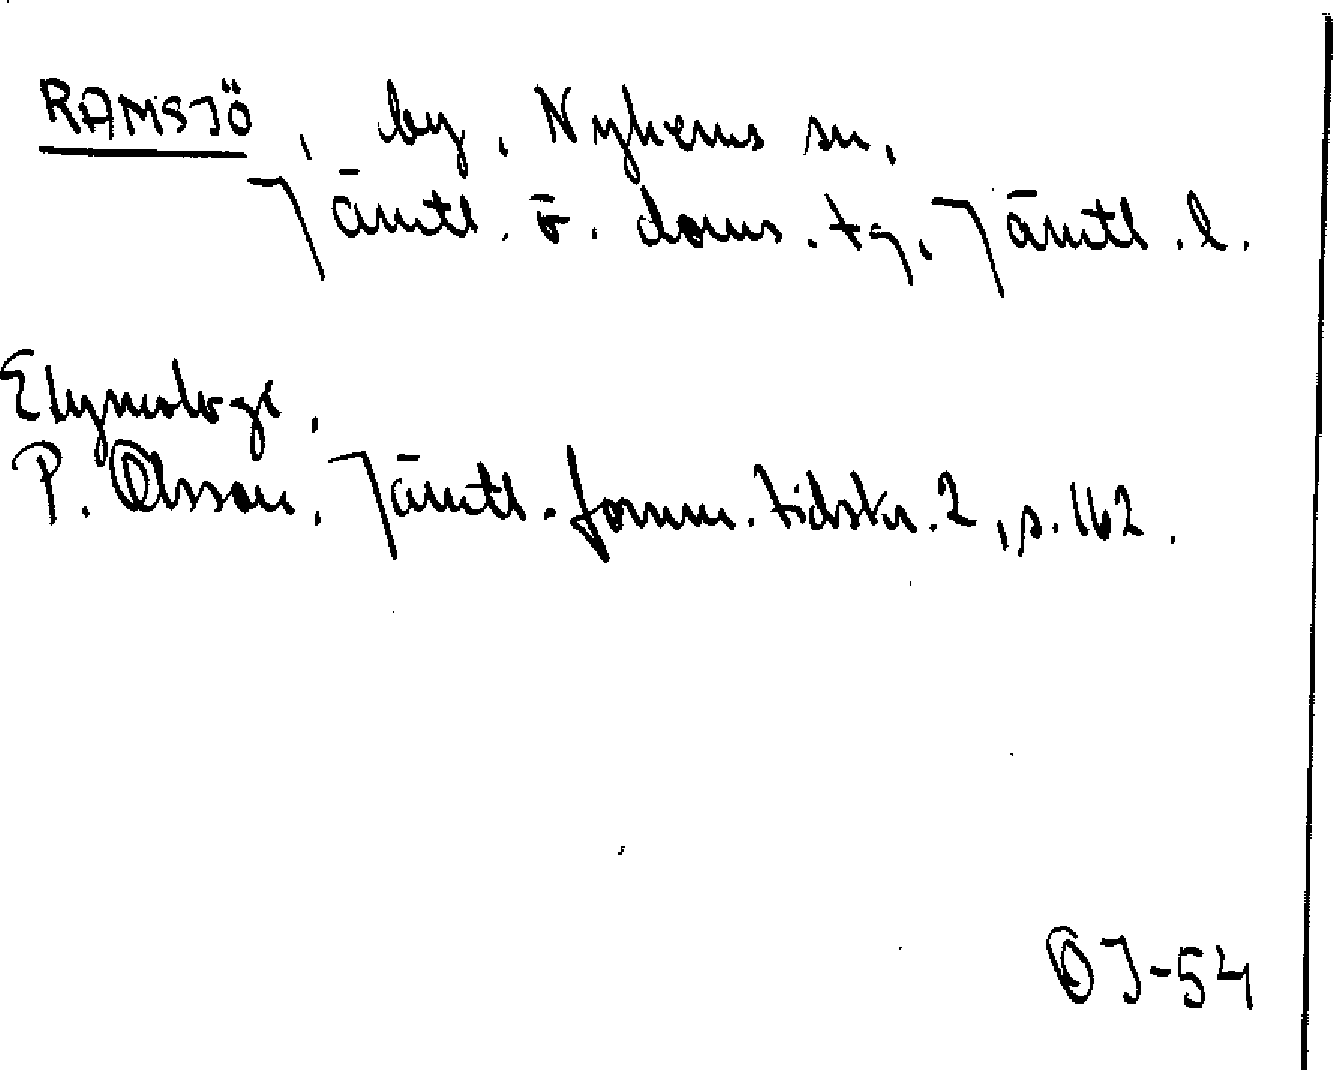 RAMSJÖ, by, Nyhems sn,
Jämtl. ö. doms. tg, Jämtl. l.
Etymologi.
P. Olsson, Jämtl. fornm. tidskr. 2, s. 162.
OJ-54